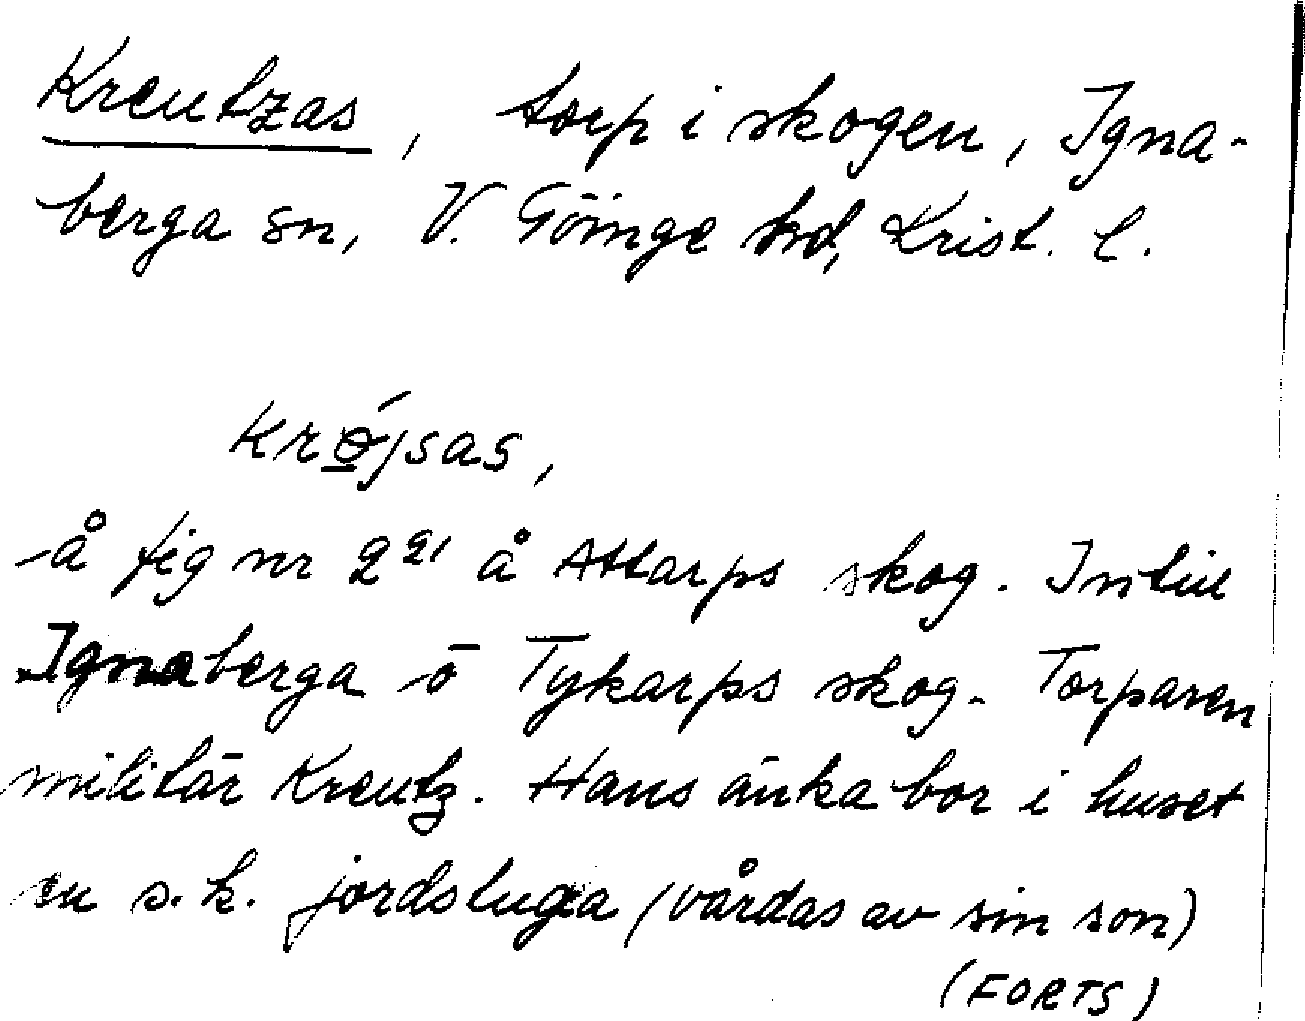 Kreutzas, torp i skogen, Igna-
berga sn, V. Göinge hd, Krist. l.
Krǿjsas,
å fig nr 2²⁹¹ å Attarps skog. Intill
Ignaberga ö Tykarps skog. Torparen
militär Kreutz. Hans änka bor i huset
en s.k. jordstuga (vårdas av sin son)
(FORTS)